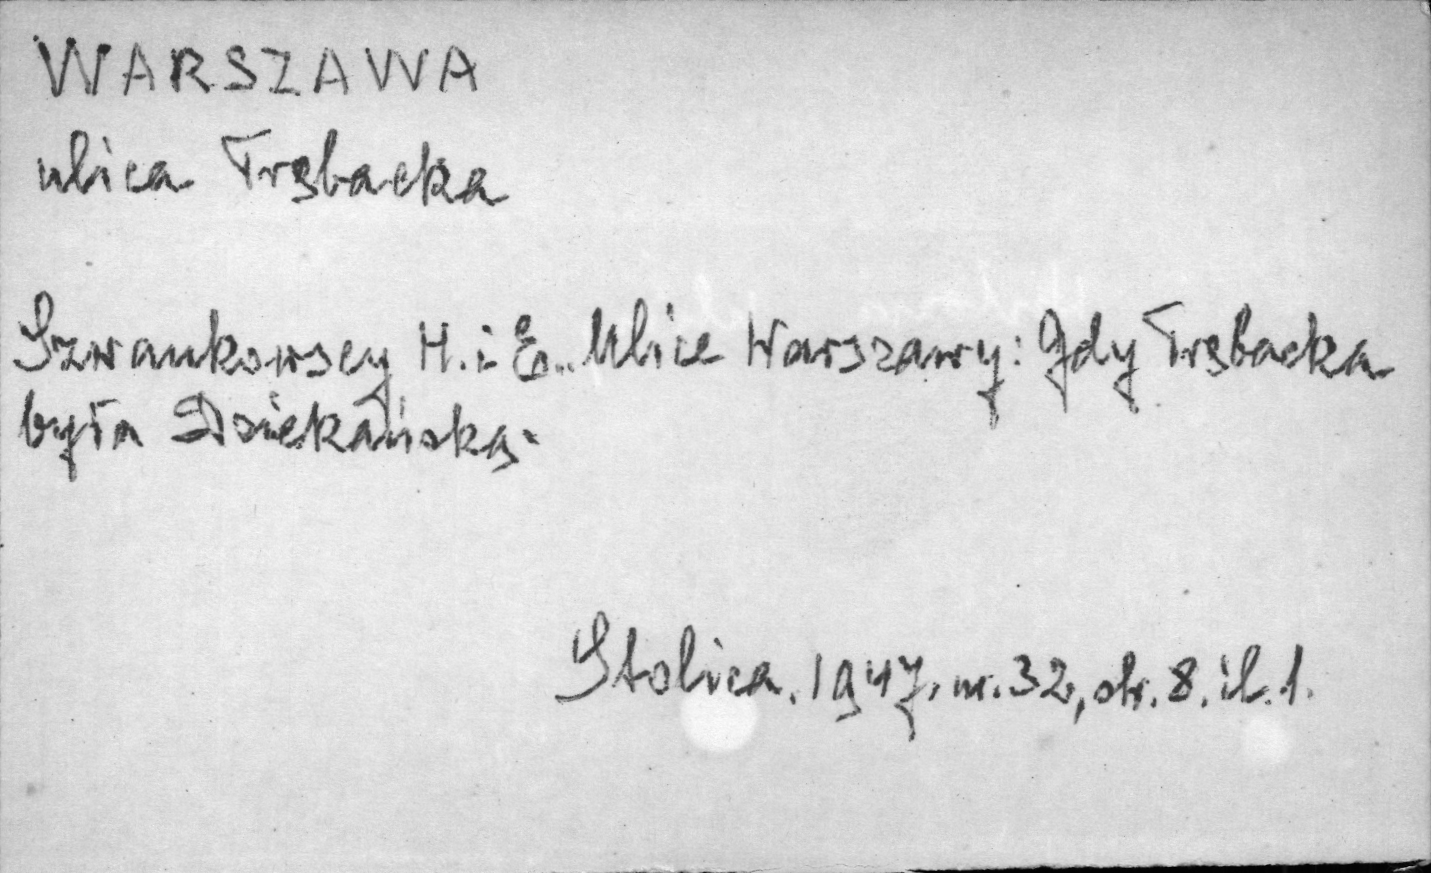 WARSZAWA
ulica Trębacka
Szwankowscy H. i E.. Ulice Warszawy: Gdy Trębacka
była Dziekańską.
Stolica. 1947. nr. 32, str. 8. il. 1.